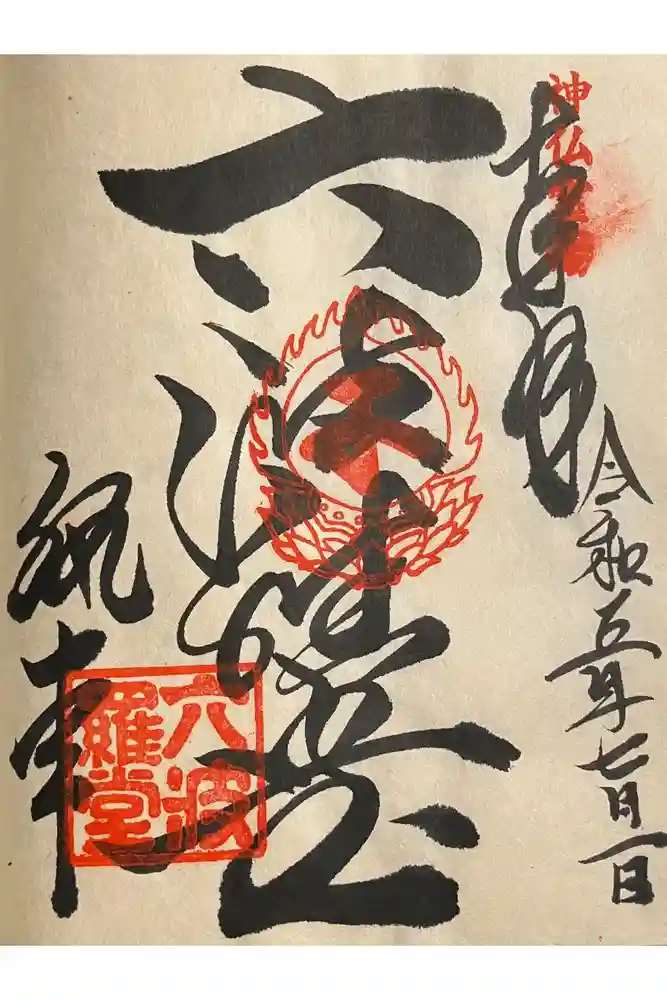 神仏霊場
奉拝
令和五年七月一日
六波羅堂
執事
六波
羅堂